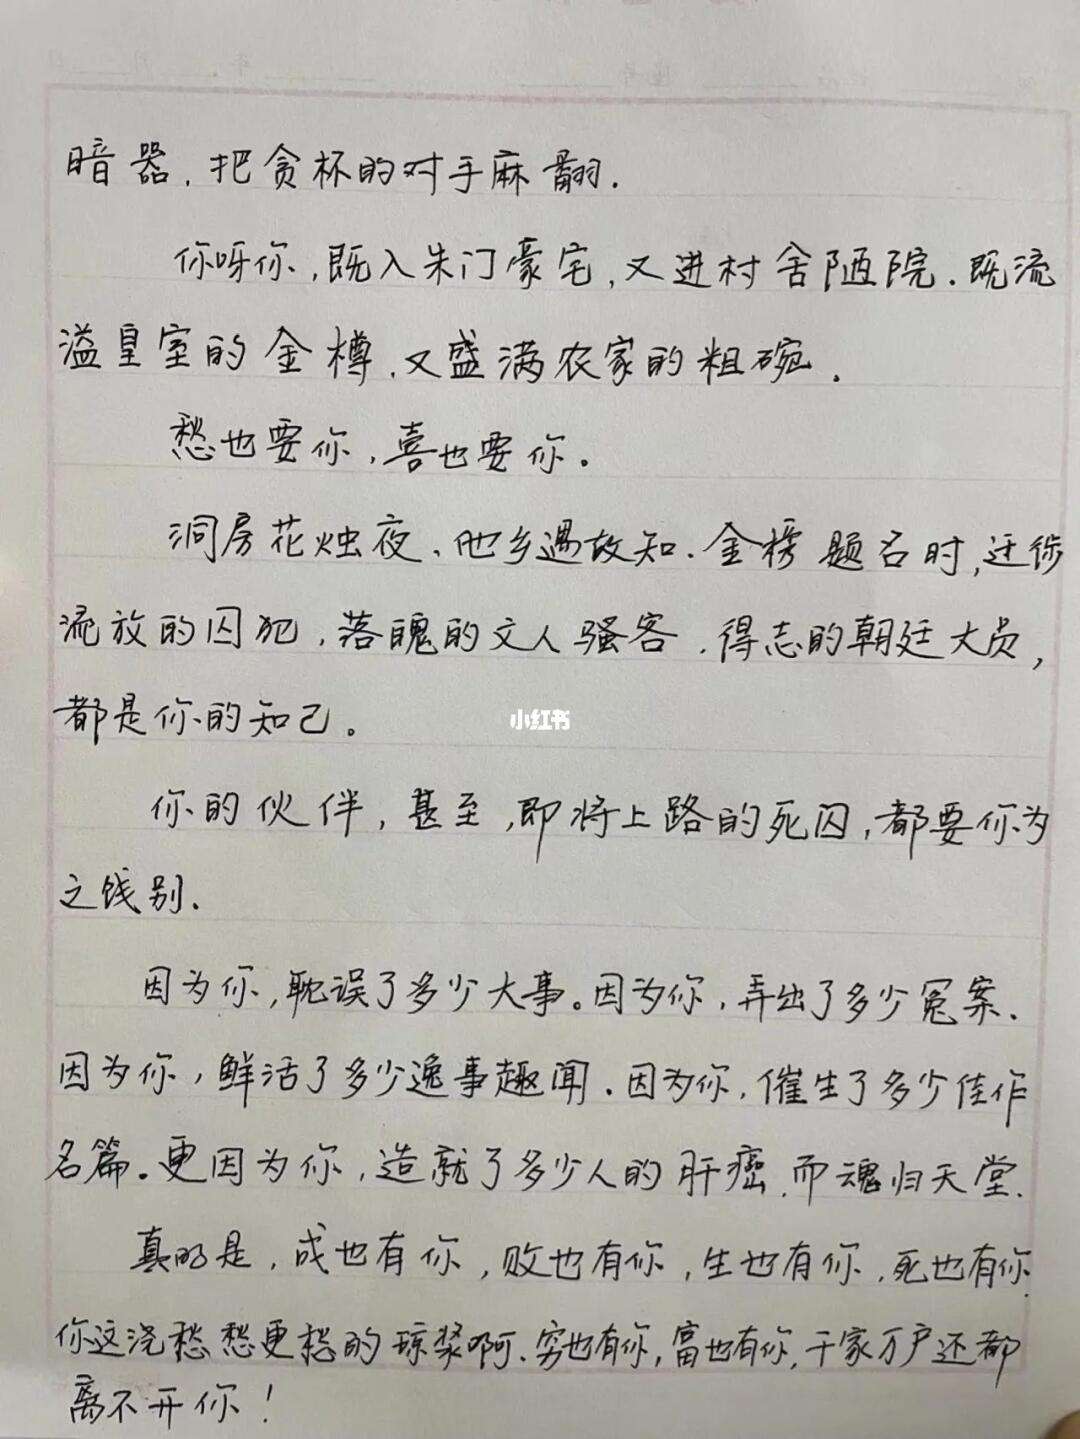 暗器，把贪杯的对手麻翻．
你呀你，既入朱门豪宅，又进村舍陋院．既流
溢皇室的金樽，又盛满农家的粗碗．
愁也要你，喜也要你。
洞房花烛夜、他乡遇故知、金榜题名时，迁徙
流放的囚犯，落魄的文人骚客、得志的朝廷大员，
都是你的知己。
小红书
你的伙伴，甚至，即将上路的死囚，都要你为
之饯别．
因为你，耽误了多少大事。因为你，弄出了多少冤案．
因为你，鲜活了多少逸事趣闻．因为你，催生了多少佳作
名篇。更因为你，造就了多少人的肝癌，而魂归天堂．
真的是，成也有你，败也有你，生也有你，死也有你．
你这浇愁愁更愁的琼浆啊、穷也有你，富也有你，千家万户还都
离不开你！